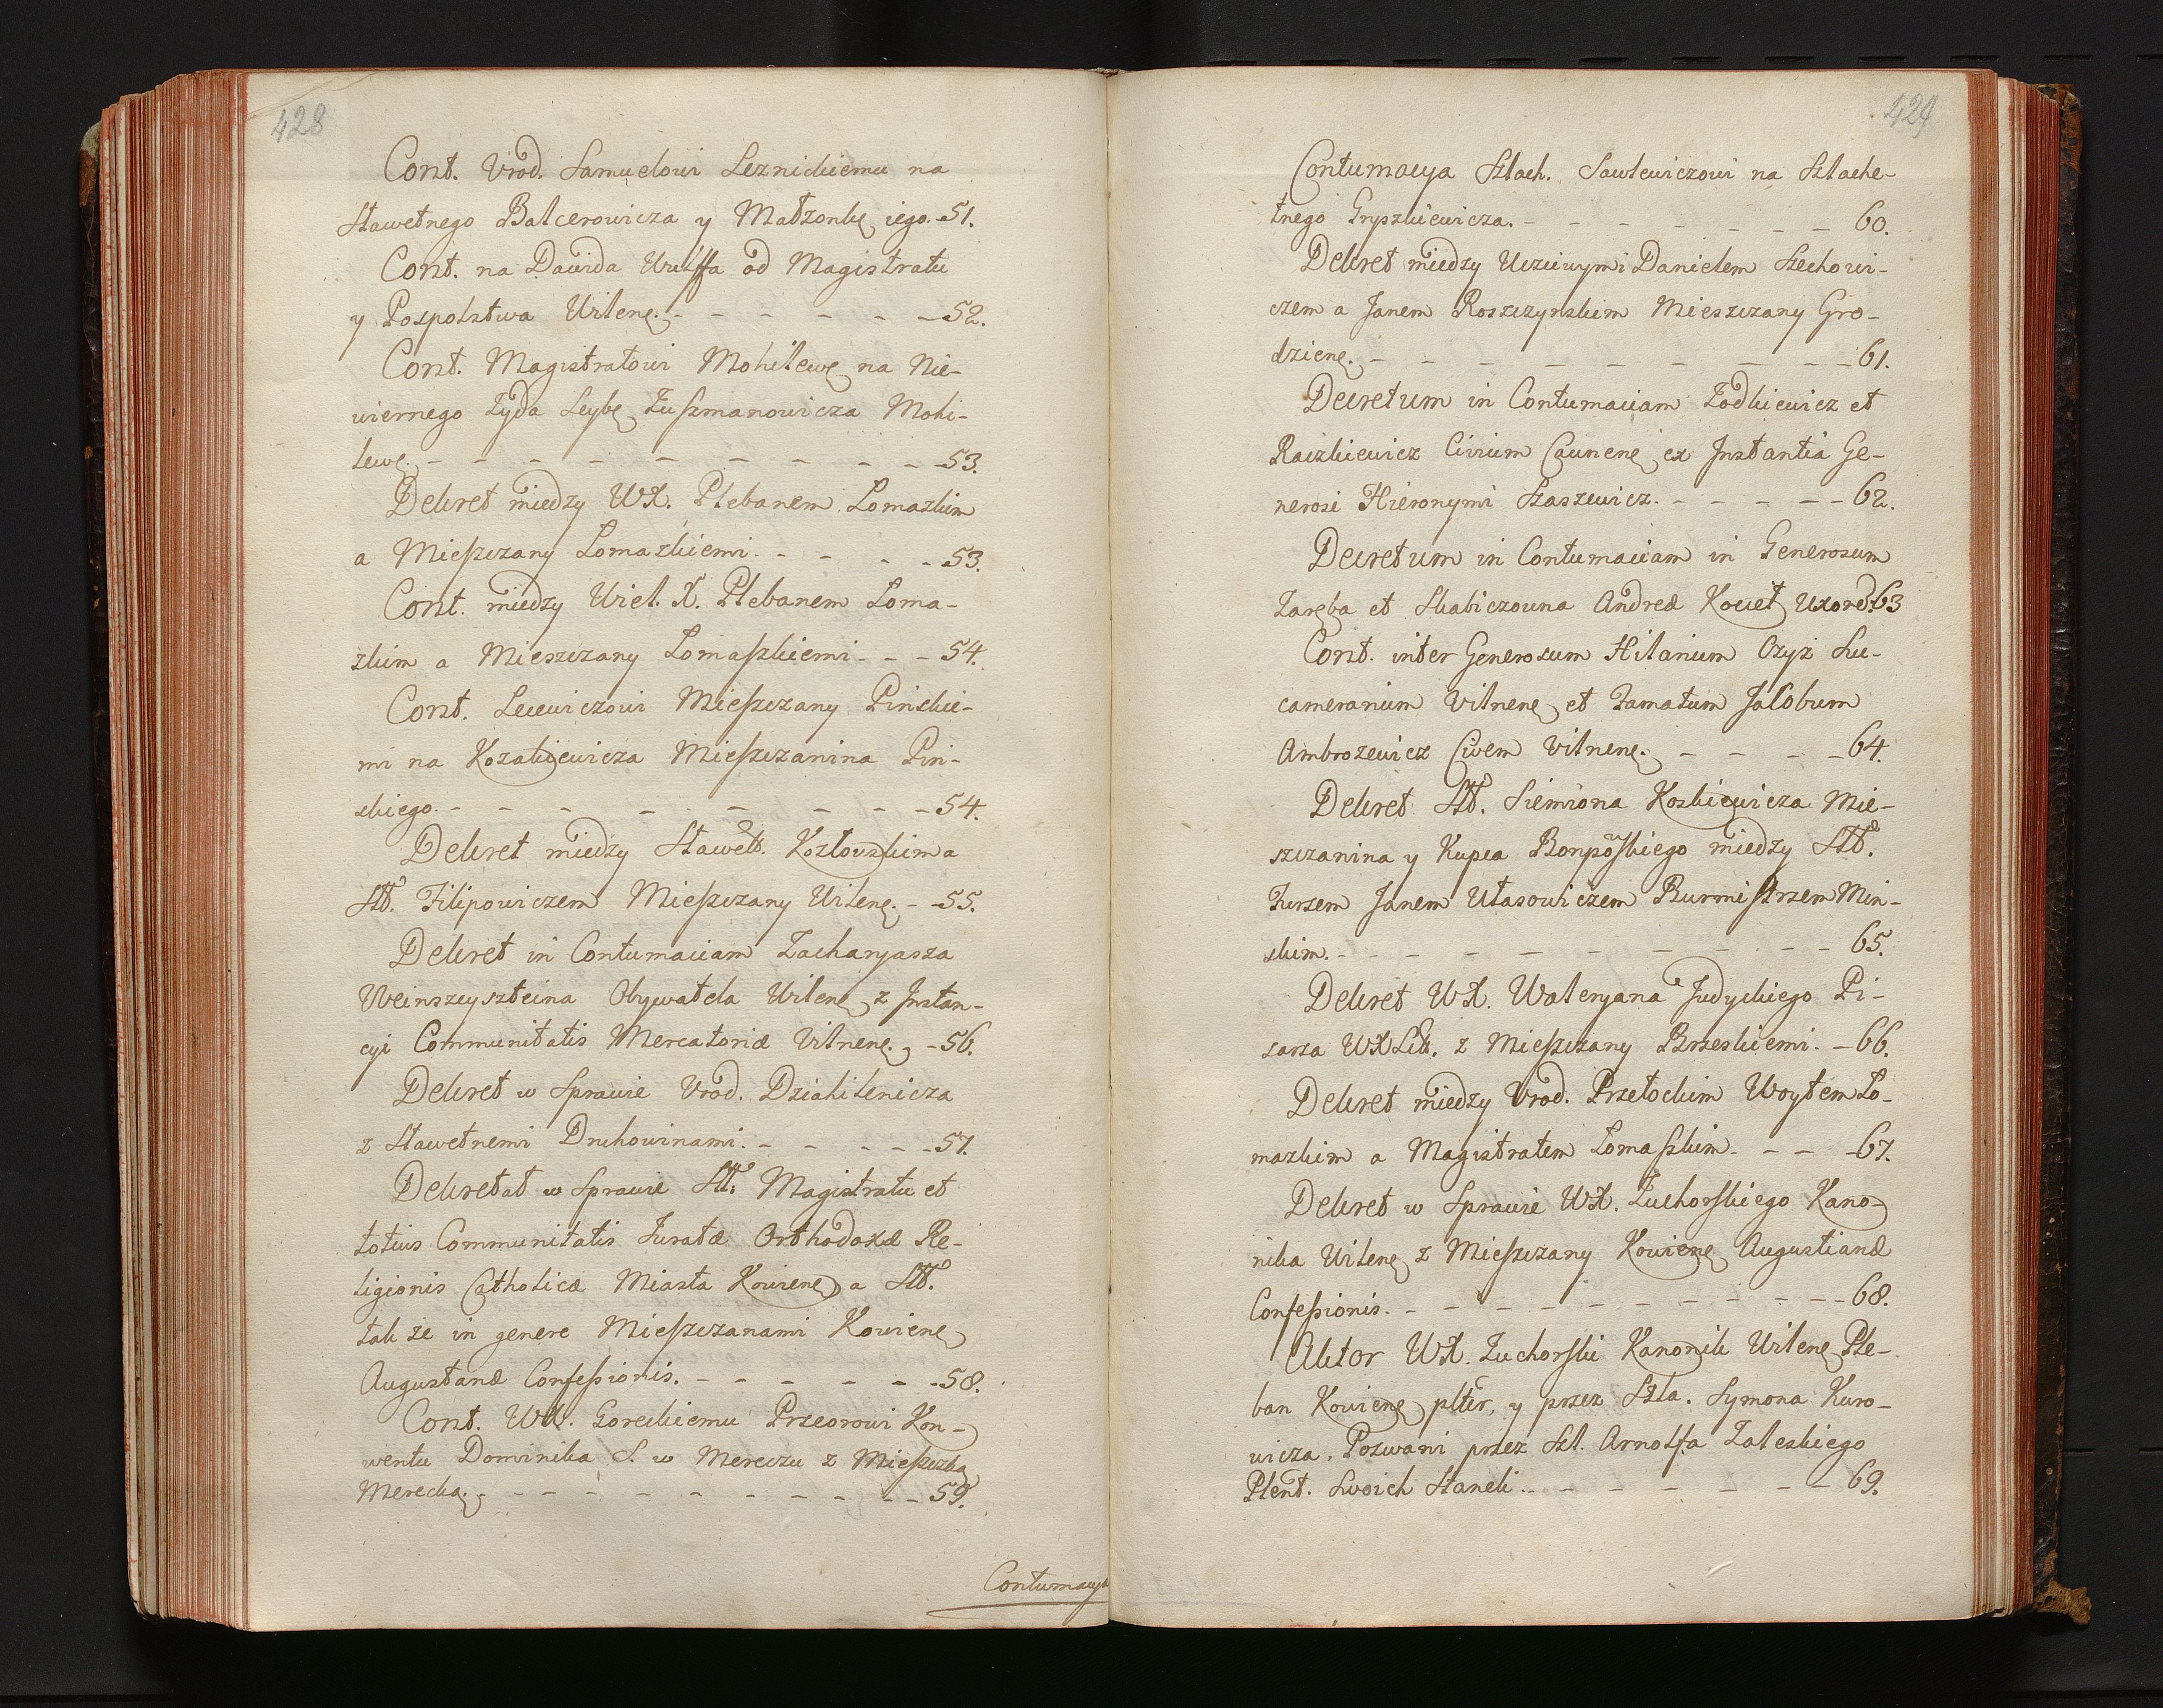 428
Cont. Vrod. Samuelowi Leznickiemu na
Sławetnego Balcerowicza y Małżonkę iego. 51.
Cont. na Dawida Wulffa od Magistratu
y Pospolstwa Wilenę. - - - - - - 52.
Cont. Magistratowi Mohilewę na Nie-
wiernego Żyda Leybę Zuszmanowicza Mohi-
lewę. - - - - - - - - - - 53.
Dekret między WX. Plebanem Łomazkim
a Mieszczany Łomazkiemi. - - - - 53.
Cont. między Wiel. X. Plebanem Łoma-
zkim a Mieszczany Łomaszkiemi - - - 54.
Cont. Mieszczany Pinskie-
mi na Kozakiewicza Mieszczanina Pin-
skiego. - - - - - - - - - 54.
Dekret między Sławett. Kozłowskim a
Stt. Filipowiczem Mieszczany Wilenę. - - 55.
Dekret in Contumaciam Zacharyasza
Weinszeyszteina Obywatela Wilenę z Jnstan-
cyi Communitatis Mercatoriæ Vilnenę. - 56.
Dekret w Sprawie Vrod. Dziahilenicza
z Sławetnemi Druhowinami. - - - - - 57.
Dekretat w Sprawie Stt. Magistratu et
totius Communitatis Juratæ Orthodoxæ Re-
ligionis Catholicæ Miasta Kowienę a Stt.
tak że in genere Mieszczanami Kowienę
Augustanæ Confessionis. - - - - - - - 58.
Cont. WX. Goreckiemu Przeorowi Kon-
wentu Dominika S. w Mereczu z Mieszczką
Merecką. - - - - - - - - - - 59.
Contumacya
429
Contumacya Szlach. Sawlewiczowi na Szlache-
tnego Gryszkiewicza. - - - - - - - 60.
Dekret między Uczciwymi Danielem Szechowi-
czem a Janem Roszczynskim Mieszczany Gro-
dzienę. - - - - - - - - - - 61.
Decretum in Contumaciam Żodkiewicz et
Raczkiewicz Civium Caunenę ex Jnstantia Ge-
nerosi Hieronymi Staszewicz. - - - - - 62.
Decretum in Contumaciam in Generosum
Zaręba et Skabiczowna Andreæ Kociet Uxorem 63
Cont. inter Generosum Hilarium Czyz Su-
camerarium Vilnenę et Famatum Jacobum
Ambrozewicz Civem Vilnenę. - - - - 64.
Dekret Stt. Siemiona Koskiewicza Mie-
szczanina y Kupca między Stt.
Jurzem Janem Własowiczem Burmistrzem Min-
skim. - - - - - - - - - - 65.
Dekret WX. Waleryana Judyckiego Pi-
sarza WXLitt. z Mieszczany Brzeskiemi. - 66.
Dekret między Vrod. Przełockim Woytem Ło-
mazkim a Magistratem Łomaszkim. - - - 67.
Dekret w Sprawie WX. Zuchorskiego Kano-
nika Wilenę z Mieszczany Kowienę Augustianæ
Confessionis. - - - - - - - - - - 68.
Aktor WX. Zuchorski Kanonik Wilenę Ple-
ban Kowienę plter, y przez Szla. Symona Kuro-
wicza, Pozwani przez Szl. Arnolfa Zaleskiego
Plent. Swoich Staneli. - - - - - - - 69.